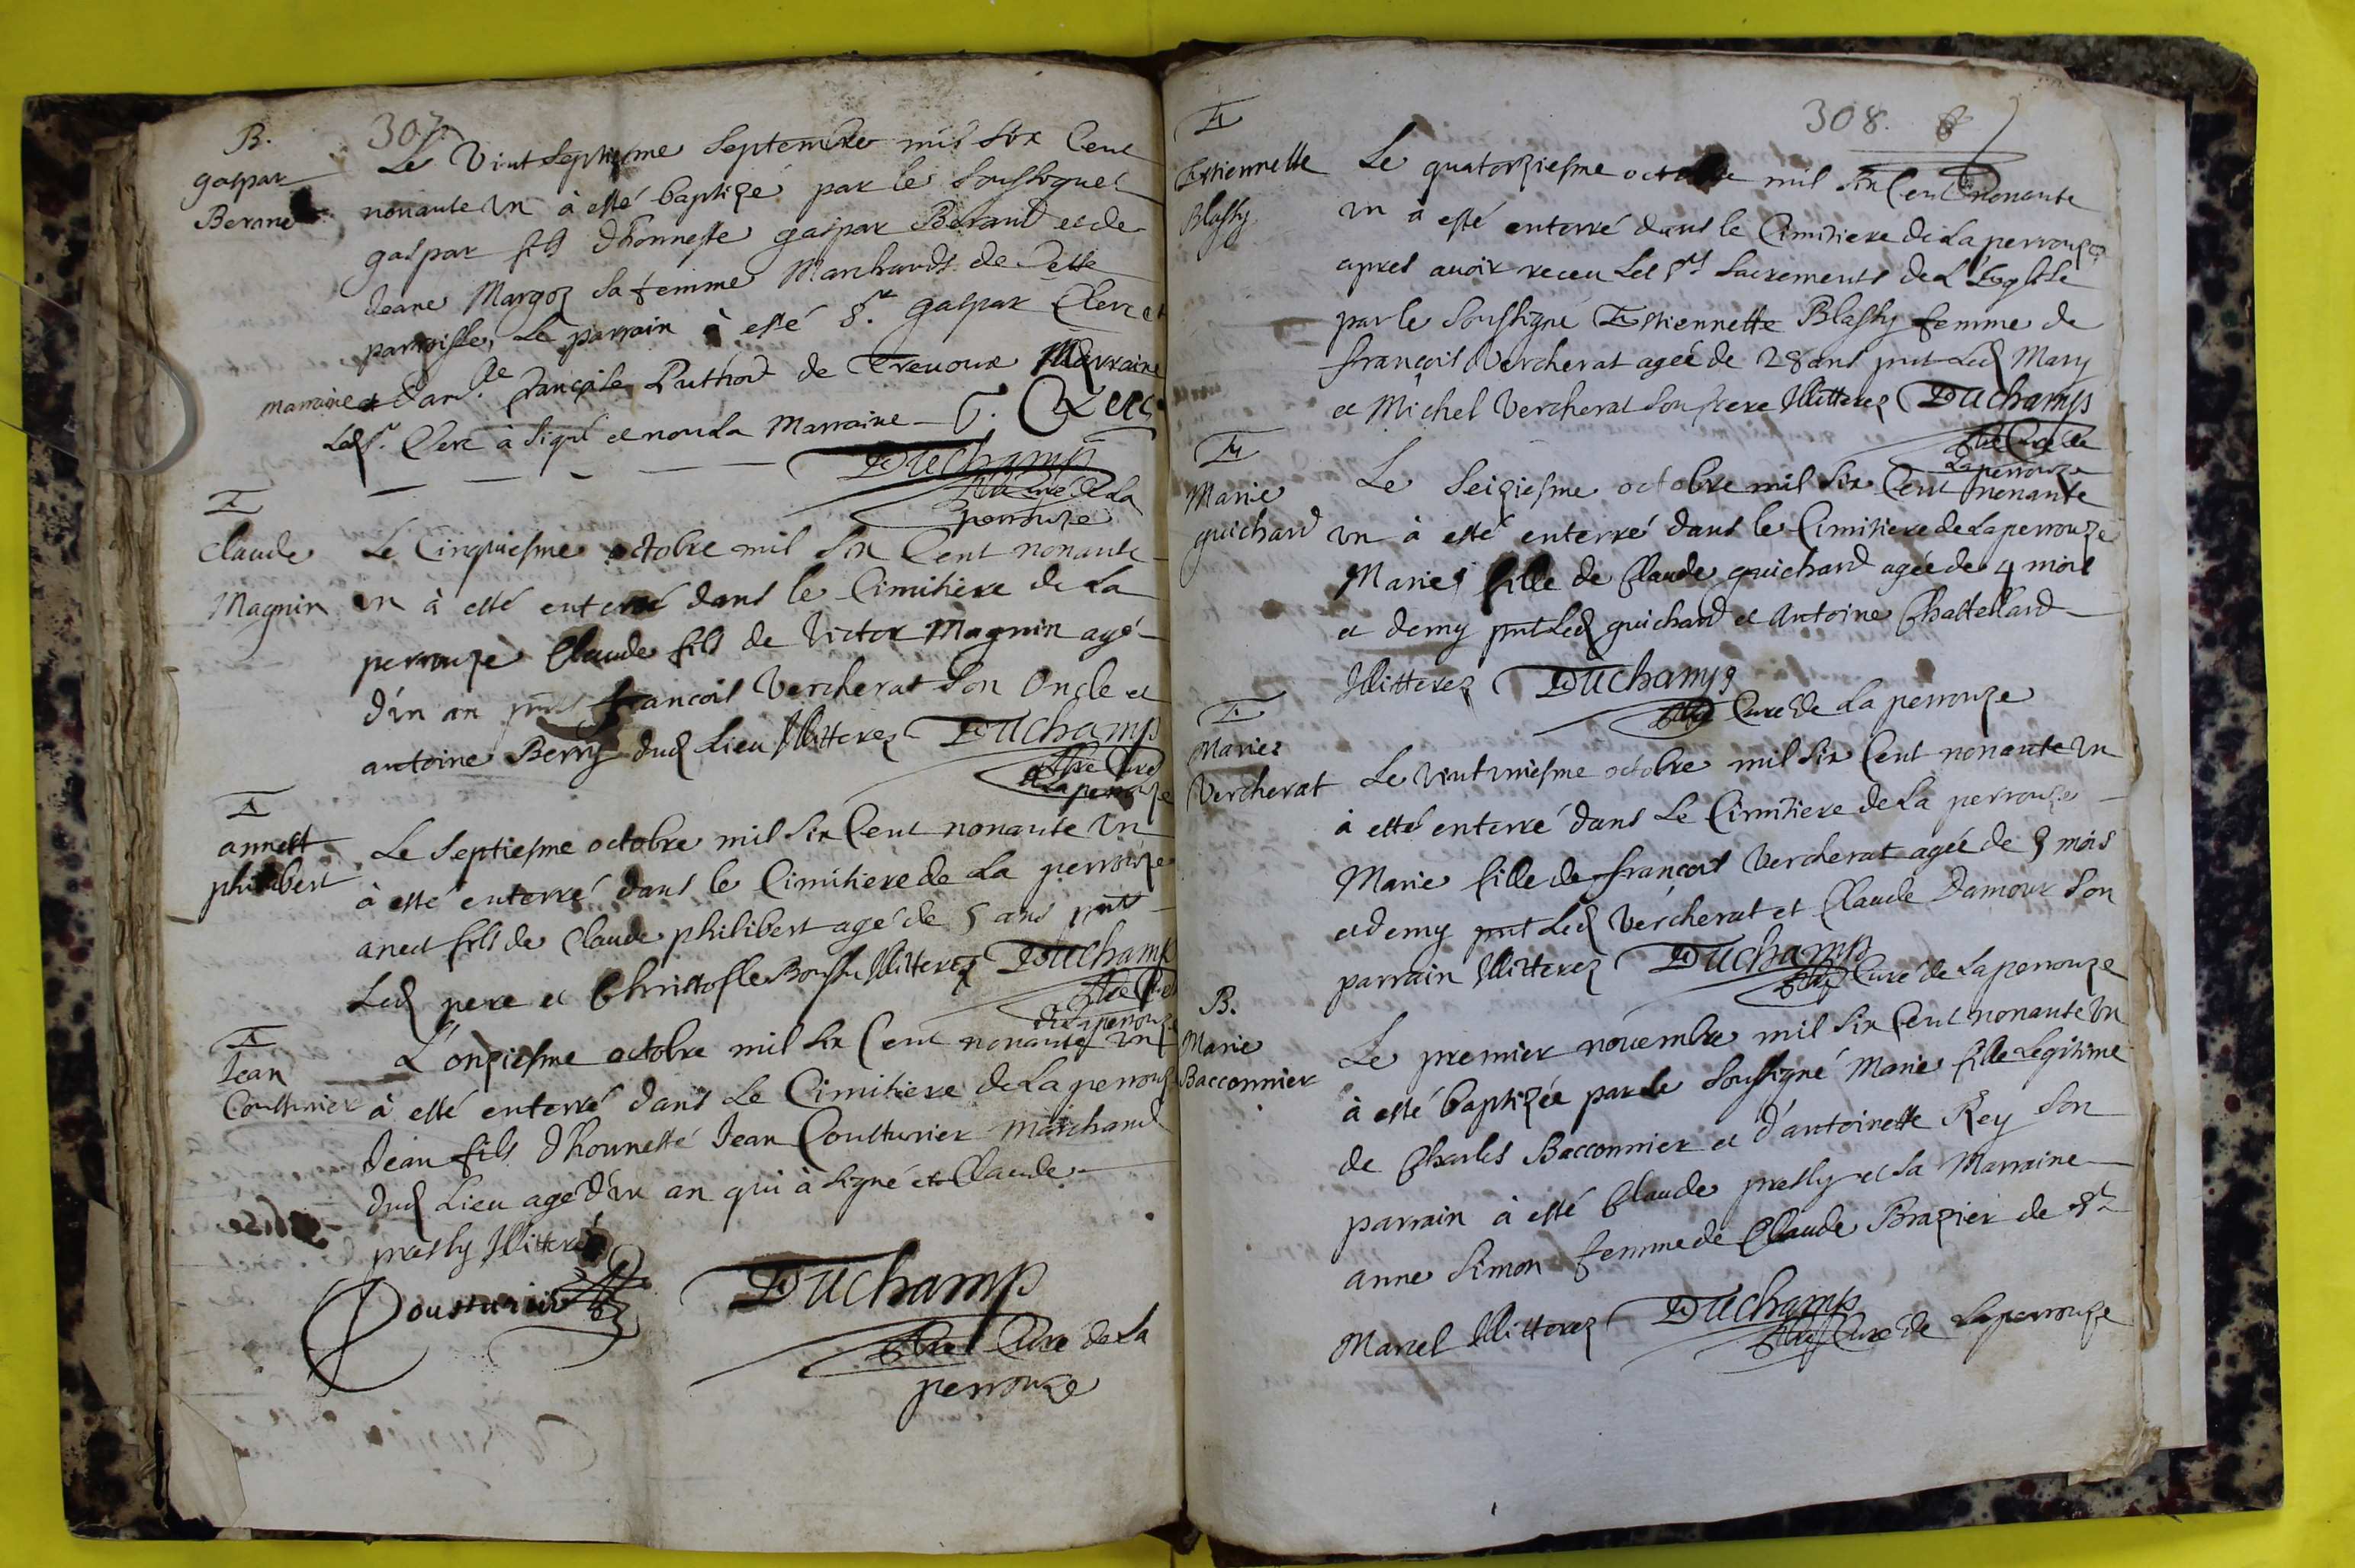 307.
B.
gaspar
Beraud
Le vint septiesme septembre mil six Cent
nonante vn à esté baptizé par le soussigné
gaspar fils d'honneste gaspar Beraud et de
Jeane Margoz sa femme Marchands de Cette
parroisse, Le parrain à esté Sr. gaspar Clerc et
marraine Dam.lle françoise Puthod de Trevoux Marraine
Led Sr. Clerc à signé et non La Marraine G. Clerc
Duchamp
Ptre Curé de La
perrouze
E
Claude
Magnin
Le Cinquiesme octobre mil six Cent nonante
vn à esté enterré dans le Cimitiere de La
perrouze Claude fils de Victor Magnin agé
d'vn an pnts françois Vercherat son Oncle et
antoine Berry dud Lieu Illitterez Duchamp
Ptre Curé
de Laperrouze
E
annett
philibert
Le septiesme octobre mil six Cent nonante vn
à esté enterré dans le Cimitiere de La perrouze
anect fils de Claude philibert agé de 5 ans pnts
Led pere et Christofle Illitterez Duchamp
Ptre Curé
de Laperrouze
E
Jean
Cousturier
L'onziesme octobre mil six Cent nonante vn
à esté enterré dans Le Cimitiere de Laperrouze
Jean fils d'honnesté Jean Cousturier marchand
dud Lieu agé d'vn an qui à signé et Claude
presly Illitteré
Cousturier Duchamp
Ptre Curé de La
perrouze
308.
E
Estiennette
Blassy
Le quatorziesme octobre mil six Cent nonante
vn à esté enterré dans le Cimitiere de La perrouze
apres avoir receu Les Sts Sacrements de L'Eglise
par le soussigné Estiennette Blassy femme de
françois Vercherat ageé de 28 ans pnt Led Mary
et Michel Vercherat son frere Illitterez Duchamp
Ptre Curé de
Laperrouze
E
Marie
guichard
Le Seiziesme octobre mil six Cent nonante
vn à esté enterré dans le Cimitiere de Laperrouze
Marie fille de Claude guichard agée de 4 mois
et demy pnt Led guichard et Antoine Chastellard
Illitterez Duchamp
Ptre Curé de La perrouze
E
Marie
Vercherat
Le vint vniesme octobre mil six Cent nonante vn
à esté enterré dans Le Cimitiere de La perrouze
Marie fille de françois Vercherat agée de 9 mois
et demy pnt Led Vercherat et Claude Damour son
parrain Illitterez Duchamp
Ptre Curé de Laperrouze
B.
Marie
Bacconnier
Le premier novembre mil six Cent nonante vn
à esté baptizée par le soussigné Marie fille Legitime
de Charles Bacconnier et d'antoinette Rey son
parrain à esté Claude presly et sa Marraine
anne Simon femme de Claude Brazier de St
Marcel Illitterez Duchamp
Ptre Curé de Laperrouze